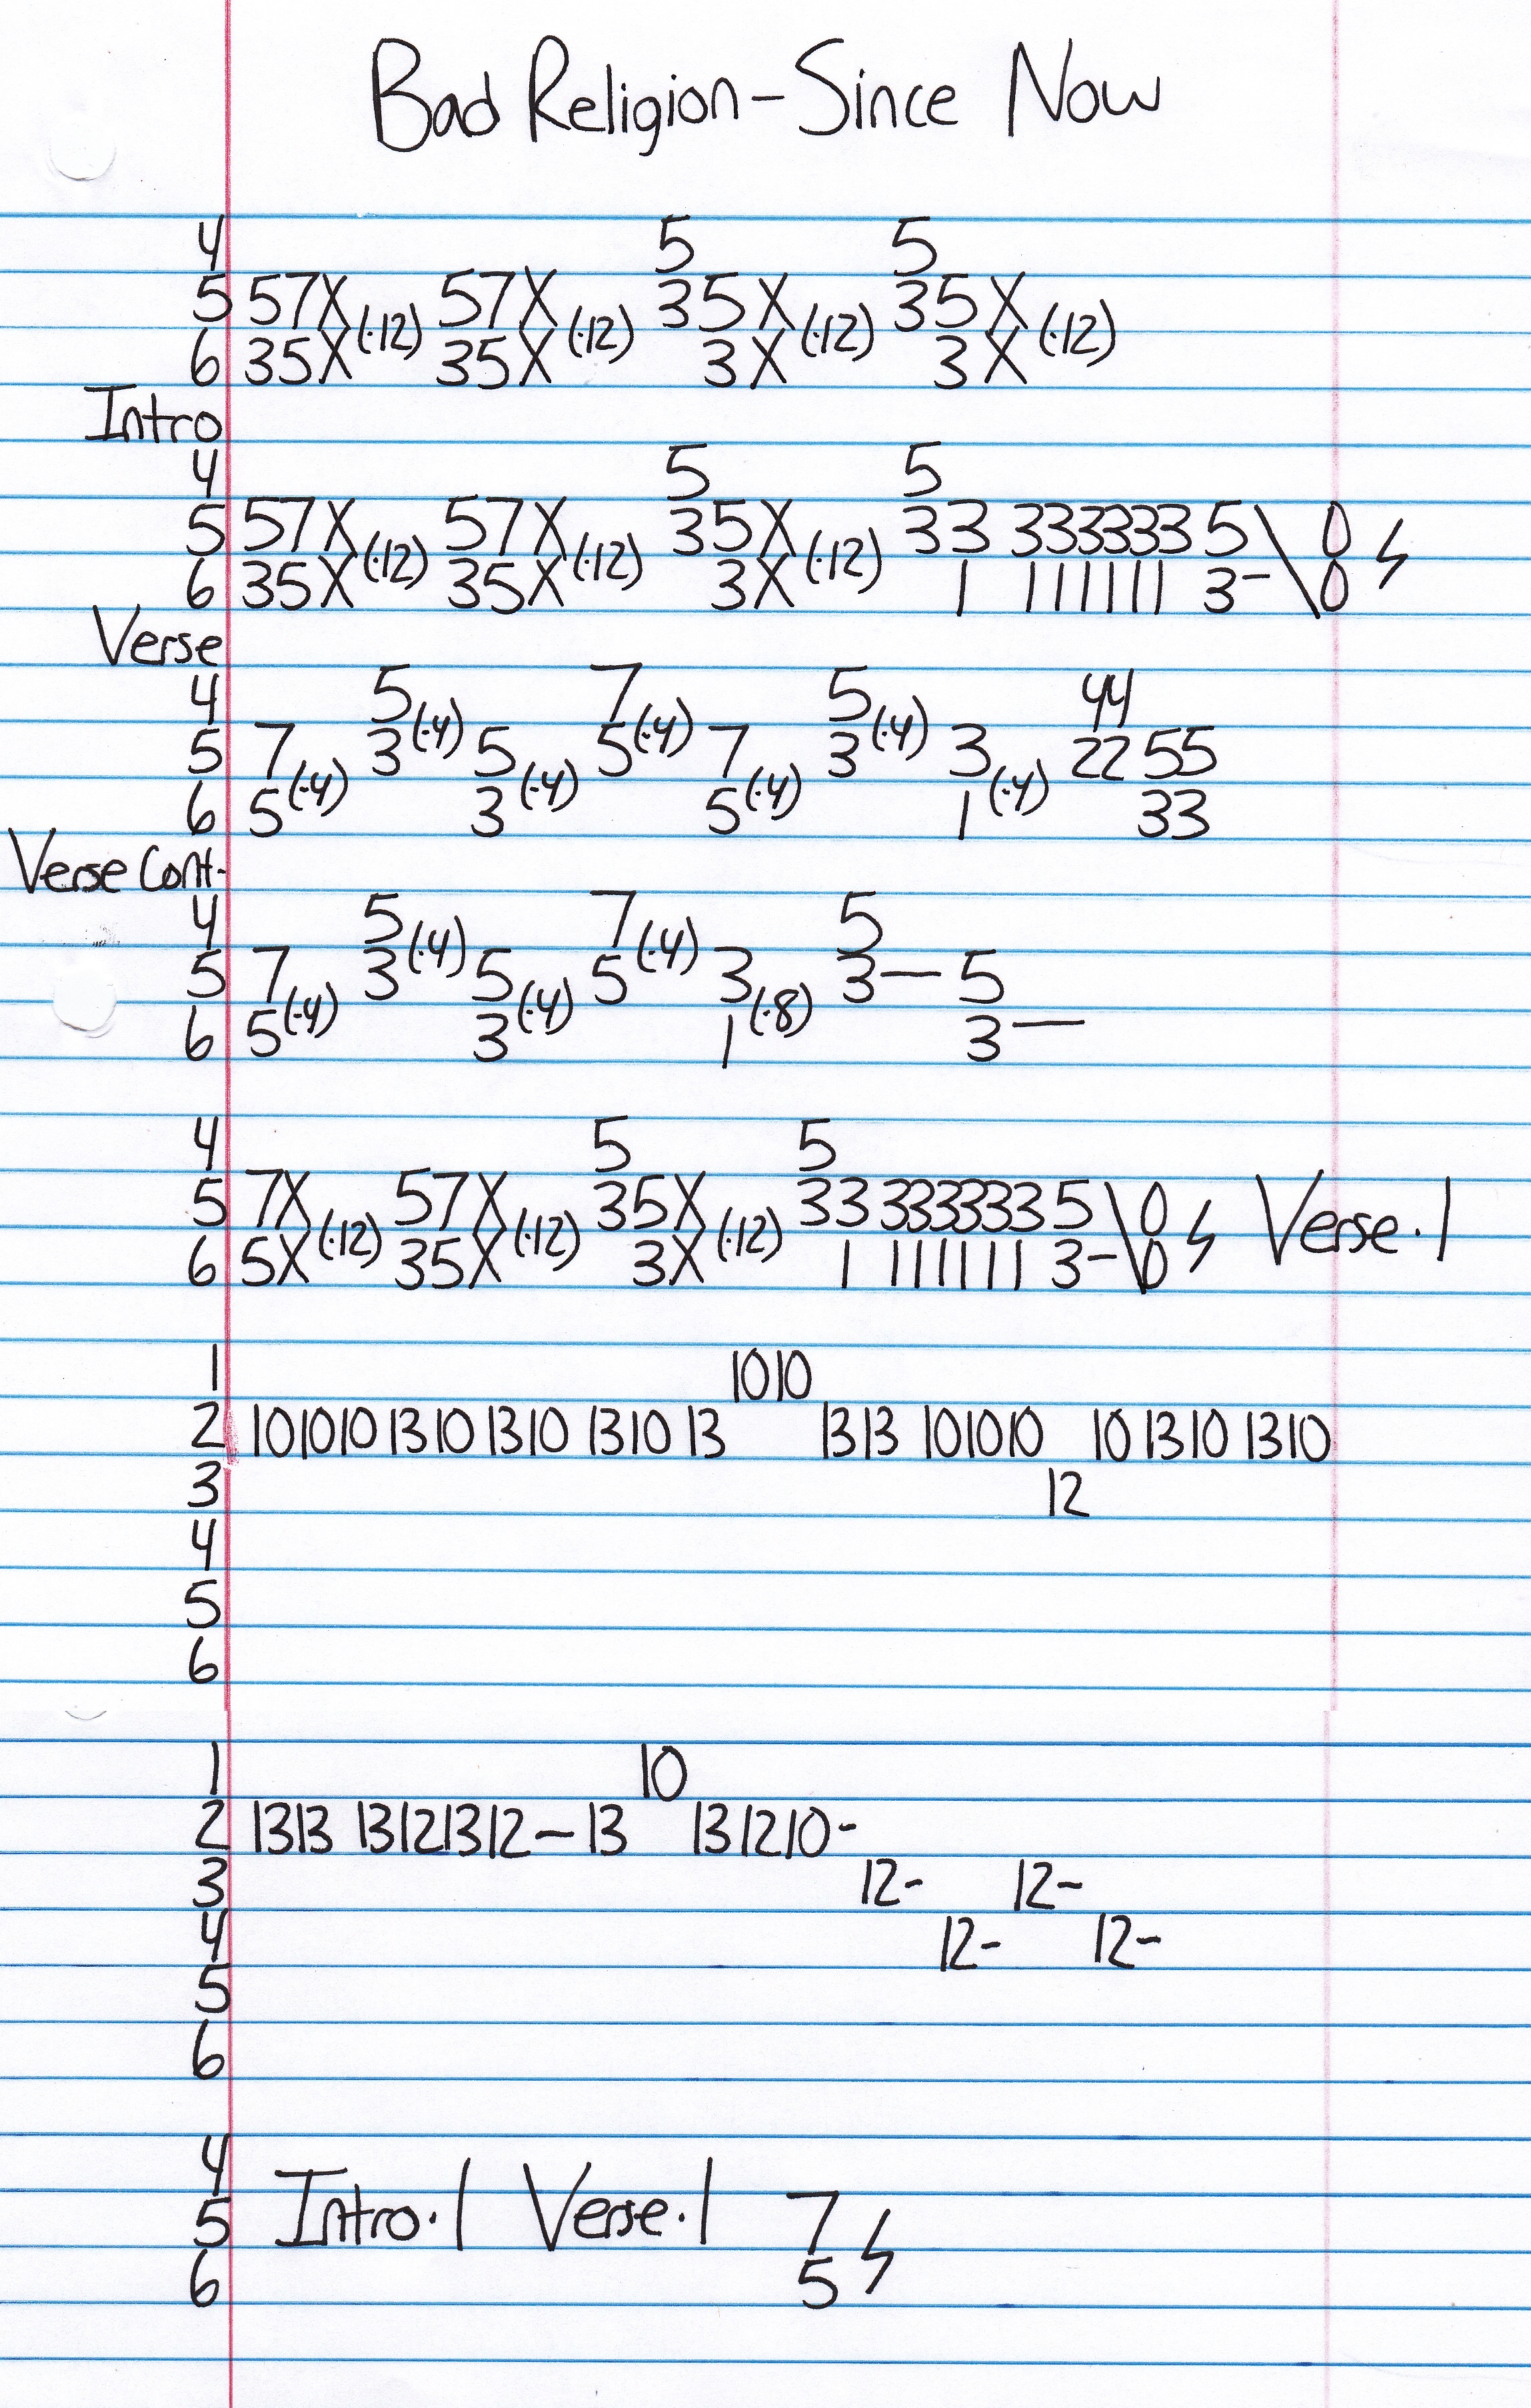 Bad Religion - Since Now
4 5 5
5 57X 57X 35X 35X
(·12) (·12) (·12) (·12)
6 35X 35X 3X 3X
Intro
4 5 5
5 57X 57X 35X 33 333333 5 \ 0
(·12) (·12) (·12)
6 35X 35X 3X 1 111111 3- 0
Verse
4 5(·4) 7(·4) 5(·4) 44
5 7 3 5 5 7 3 3 22 55
6 5(·4) 3(·4) 5(·4) 1(·4) 33
Verse Cont.
4 5(·4) 7(·4) 5
5 7 3 5 5 3 3— 5
6 5(·4) 3(·4) 1(·8) 3—
4 5 5
5 7X 57X 35X 33 333333 5 \ 0 Verse·1
(·12) (·12) (·12)
6 5X 35X 3X 1 111111 3- 0
1 10 10
2 10 10 10 13 10 13 10 13 10 13 13 13 10 10 10 10 13 10 13 10
3 12
4
5
6
1 10
2 13 13 13 12 13 12 — 13 13 12 10 -
3 12- 12-
4 12- 12-
5
6
4
5 Intro·1 Verse·1 7
6 5